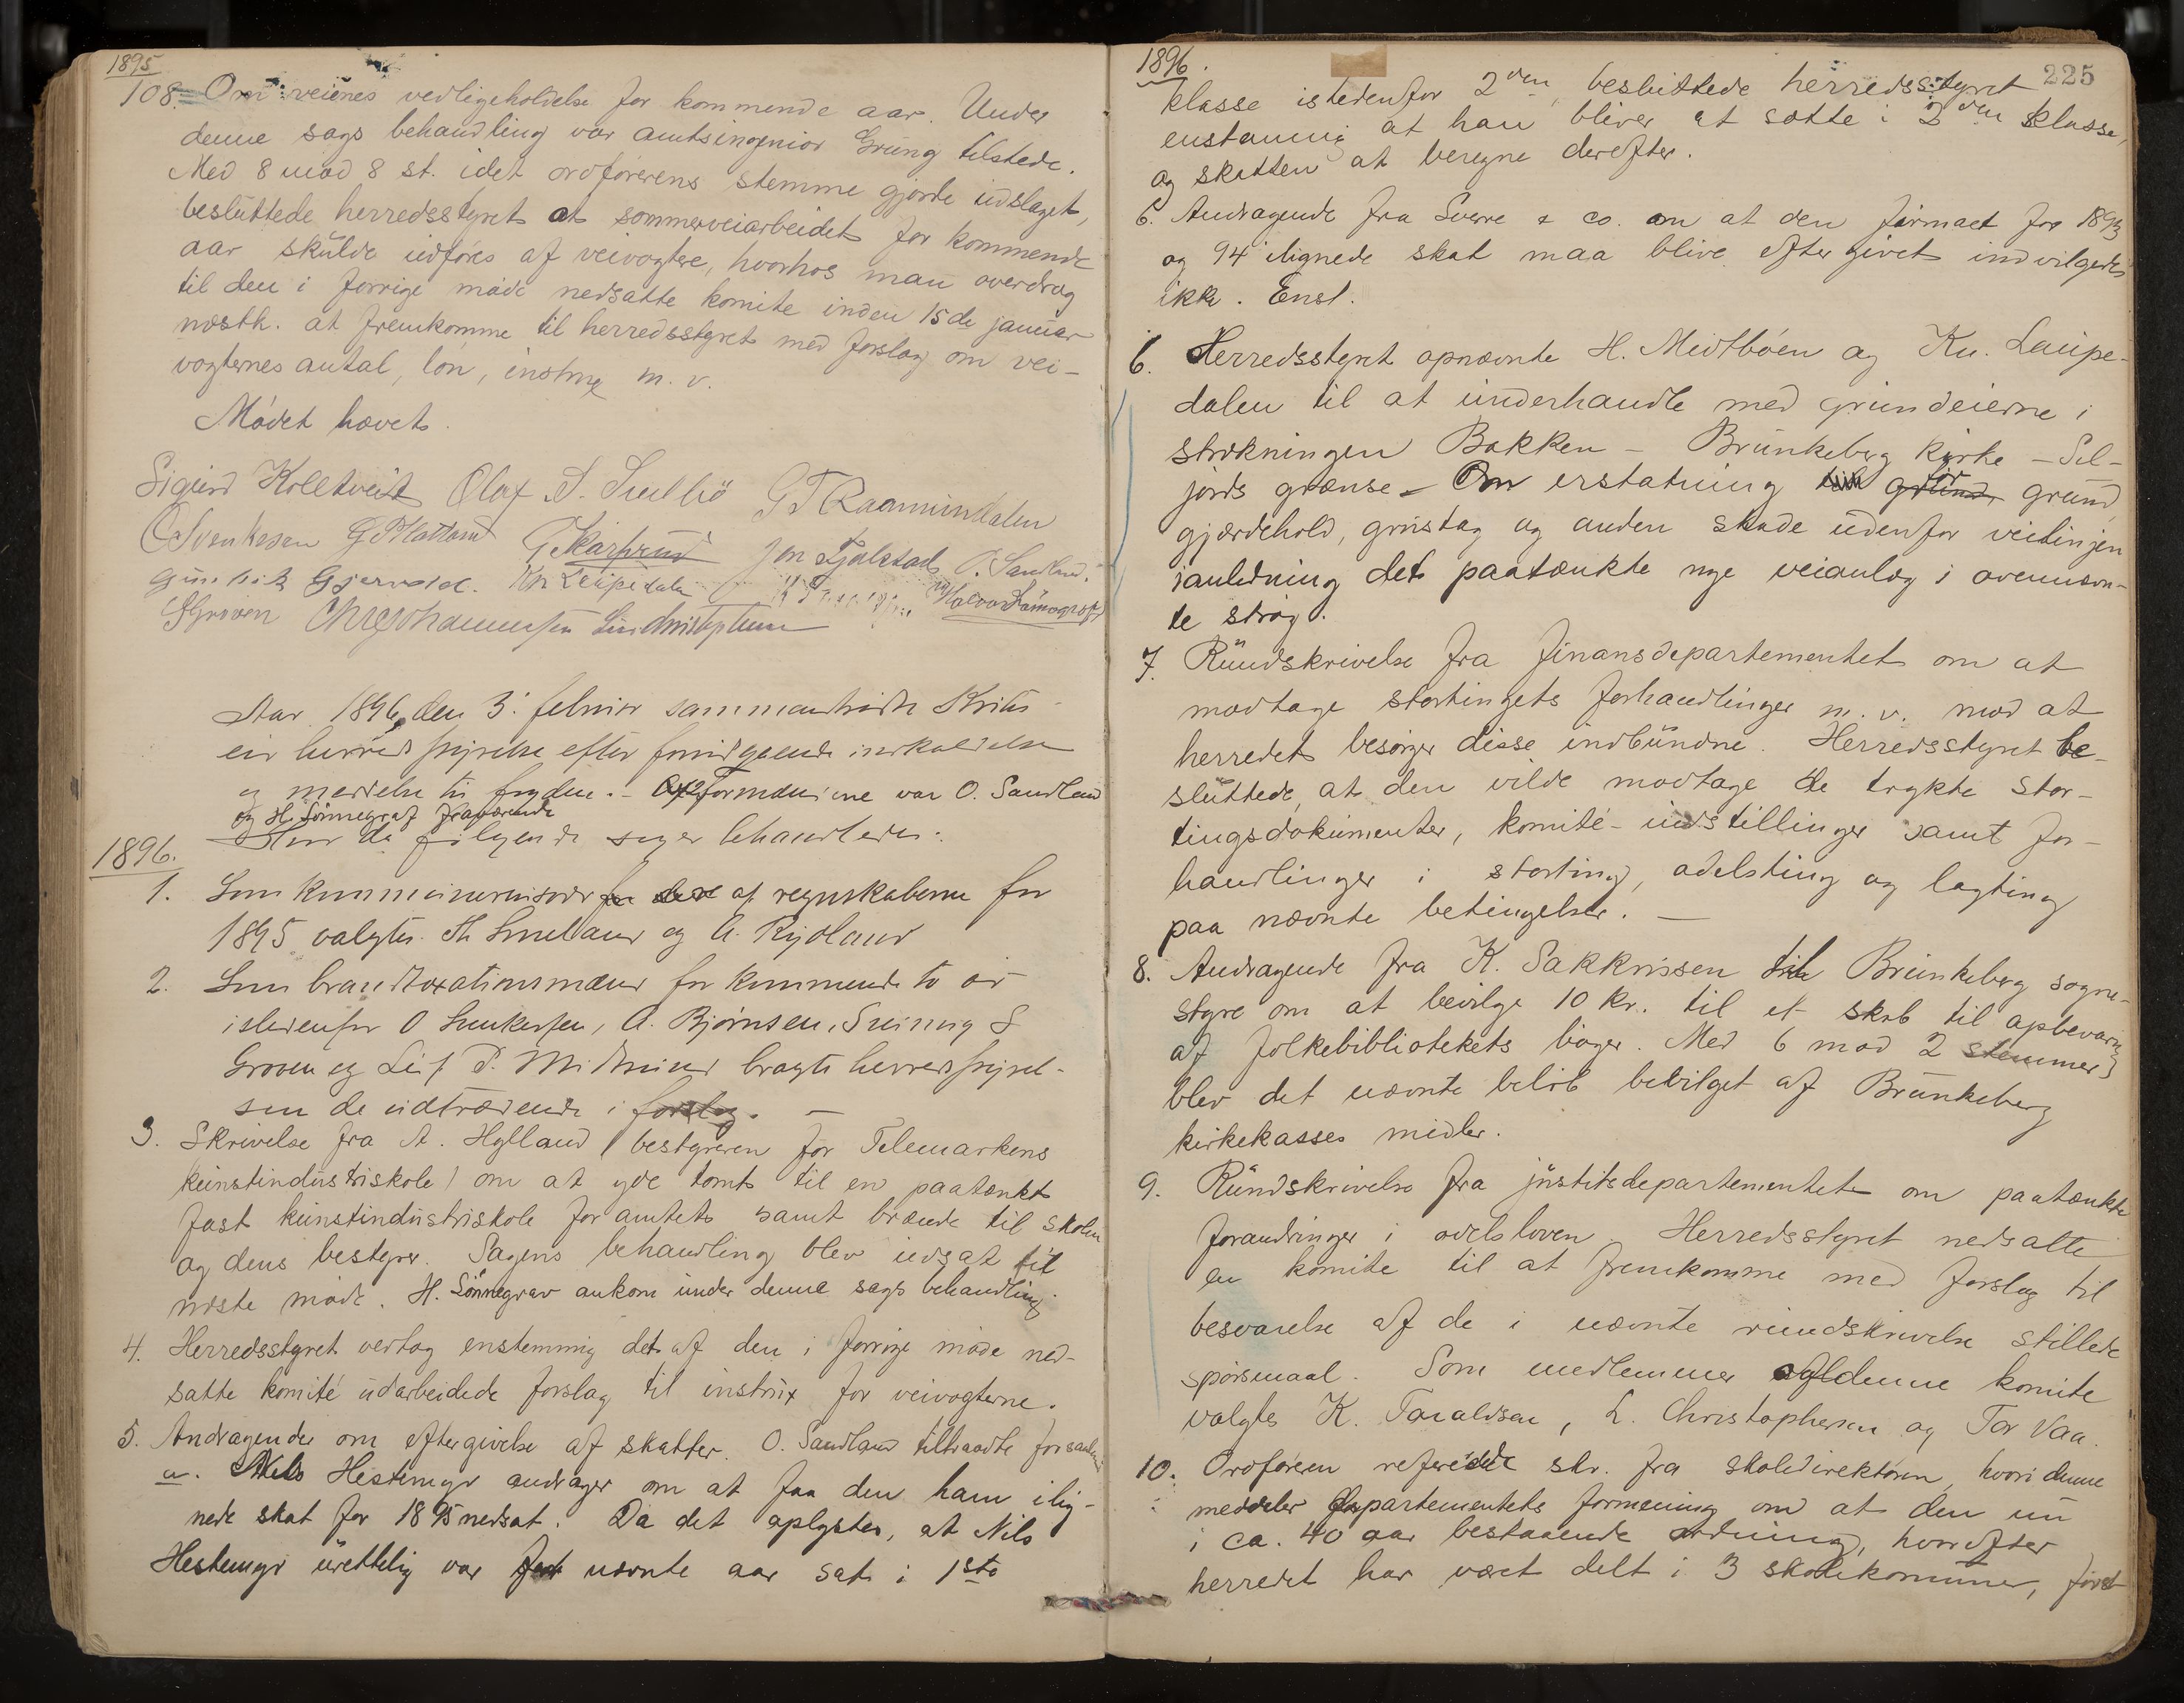 1895
108. Om veienes vedligeholdelse for kommende aar. Under
denne sags behandling var amtsingeniør Grung tilstede.
Med 8 mod 8 st. idet ordførerens stemme gjorde udslaget,
besluttede herredsstyret at sommerveiarbeidet for kommende
aar skulde udføres af veivogtere, hvorhos man overdrog
til den i forrige møde nedsatte komite inden 15de januar
næstk. at fremkomme til herredsstyret med forslag om vei-
vogternes antal, løn, instrux m. v.
Mødet hævet.
Sigurd Kolltveit Olaf S. G T Raamundalen
O Svenkesen Jon O. Sandland
Gunleik Gjervold. Kn Leipedalen Halvor Sønnegraf
S Groven
Aar 1896, den 3. februar sammentraadte Kvites-
eid herredsstyrelse efter foregaaende indkaldelse
og meddelse til fogden. - Af formændene var O. Sandland
og H. Sønnegraf fraværende
Hvor da følgende sager behandledes:
1896.
1. Som kommunerevisorer af regnskaberne for
1895 valgtes Th. og A. Rydland
2. Som brandtaxationsmænd for kommende to aar
istedenfor O Svenkesen, A. Bjørnsen, S
Groven og Leif P. bragte herredsstyrel-
sen de udtrædende i forslag. —
3. Skrivelse fra A. Hylland (bestyreren for Telemarkens
kunstindustriskole) om at yde tomt til en paatænkt
fast kunstindustriskole for amtet samt brænde til skolen
og dens bestyrer. Sagens behandling blev udsat til
næste møde. H. Sønnegrav ankom under denne sags behandling
4. Herredsstyret vedtog enstemmig det af den i forrige møde ned-
satte komité udarbeidede forslag til instrux for veivogterne.
5. Andragender om eftergivelse af skatter. O. Sandland tiltraadte forsaml.
a. Nils Hestemyr andrager om at faa den ham ilig-
nede skat for 1895 nedsat. Da det oplystes, at Nils
Hestemyr urettelig var for nævnte aar sat i 1ste
1896.
225
klasse istedenfor 2den, besluttede herredsstyret
enstemmig at han bliver at sætte i 2den klasse,
og skatten at beregne derefter.
b. Andragende fra Sverre & co. om at den firmaet for 1893
og 94 ilignede skat maa blive eftergivet indvilgedes
ikke. Enst.
6. Herredsstyret opnævnte H. Midtbøen og Kn. Laupe-
dalen til at underhandle med grundeierne i
strækningen Bakken - Brunkeberg kirke - Sel-
jords grænse - Om erstatning for grund,
gjærdehold, grustag og anden skade udenfor veilinjen
ianledning det paatænkte nye veianlæg i ovennævn-
te strøg.
7. Rundskrivelse fra finansdepartementet om at
modtage stortingets forhandlinger m. v. mod at
herredet besørger disse indbundne. Herredsstyret be-
sluttede, at den vilde modtage de trykte stor-
tingsdokumenter, komité-indstillinger samt for-
handlinger i storting, odelsting og lagting
paa nævnte betingelser. —
8. Andragende fra K. Sakkrissen til Brunkeberg sogne-
styre om at bevilge 10 kr. til et skab til opbevaring
af folkebibliotekets bøger. Med 6 mod 2 stemmer
blev det nævnte beløb bevilget af Brunkeberg
kirkekasses midler.
9. Rundskrivelse fra justitsdepartementet om paatænkte
forandringer i odelsloven. Herredsstyret nedsatte
en komite til at fremkomme med forslag til
besvarelse af de i nævnte rundskrivelse stillede
spørsmaal. Som medlemmer af denne komite
valgtes K. Taraldsen, L. Christophersen og Tor Vaa.
10. Ordføreren refererede skr. fra skoledirektøren, hvori denne
meddeler departementets formening om at den nu
i ca. 40 aar bestaaende ordning, hvorefter
herredet har været delt i 3 skolekommuner, først